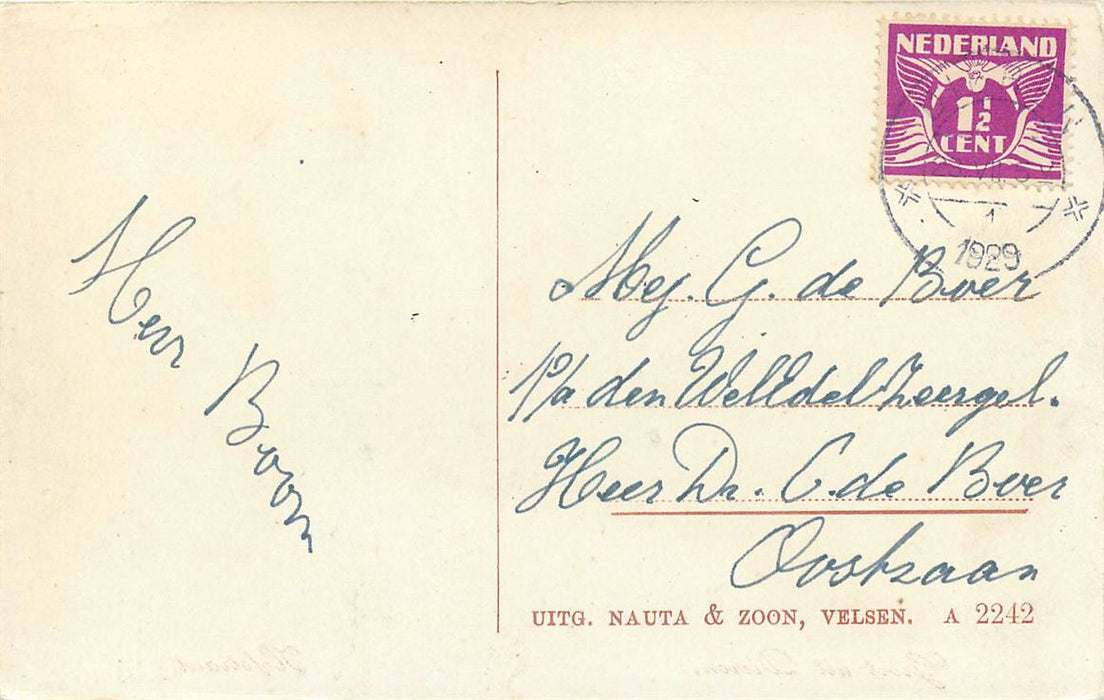 Heer Boon
NEDERLAND
1½
CENT
1
1929
Mej. G. de Boer
p/a den WelEdelZeergel.
Heer Dr. C. de Boer
Oostzaan
UITG. NAUTA & ZOON, VELSEN. A 2242